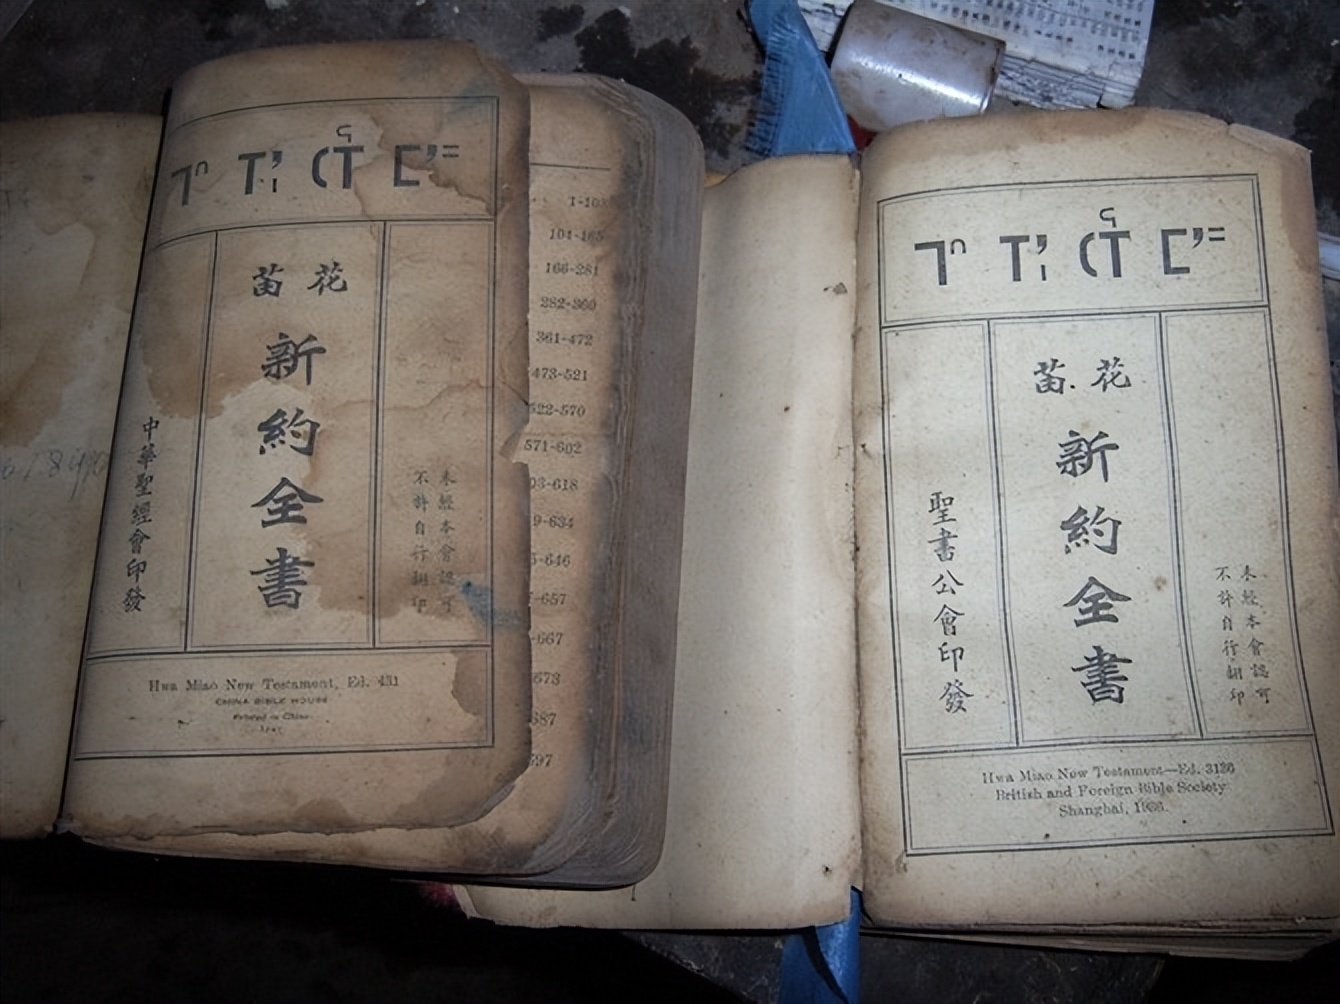 花苗
新約全書
未經本會認可
不許自行翻印
中華聖經會印發
Hwa Miao New Testament, Ed. 431
CHINA BIBLE HOUSE
Printed in China
104-165
166-281
282-360
361-472
473-521
522-570
571-602
03-618
9-634
-646
-657
-667
673
687
花苗
新約全書
未經本會認可
不許自行翻印
聖書公會印發
Hwa Miao New Testament—Ed. 3136
British and Foreign Bible Society
Shanghai, 1936.